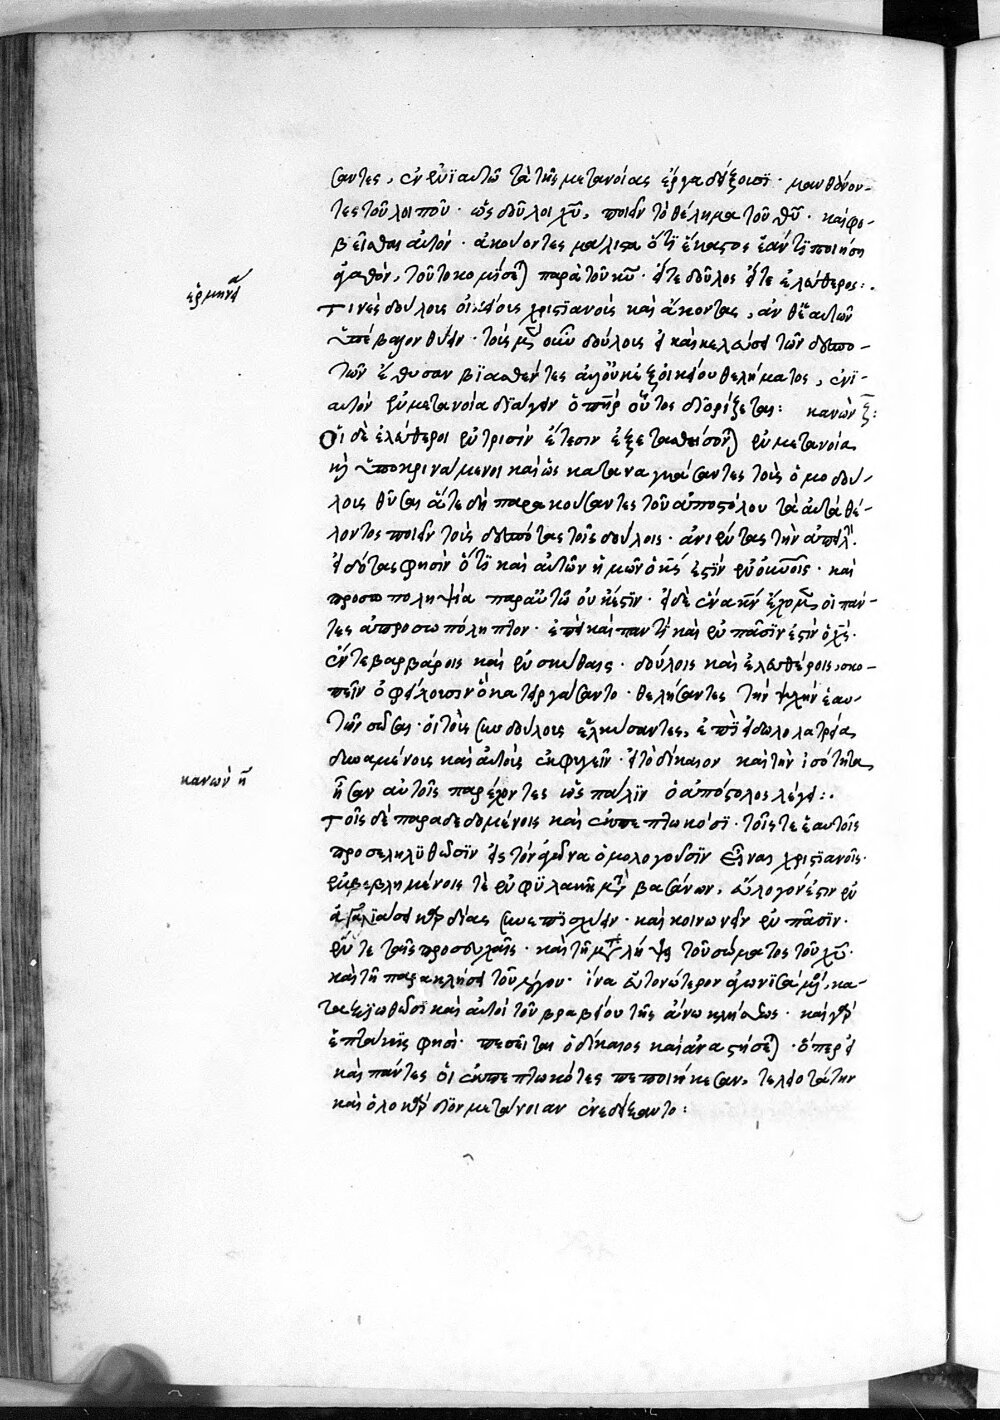 σαντες, ἐν ἐνϊαυτῶ τὰ τῆς μετανοίας ἔργα δείξουσϊ· μανθάνον-
τες τοῦ λοιποῦ· ὡς δοῦλοι χῦ, ποιεῖν τὸ θέλημα τοῦ θῦ· καὶ φο-
βεῖσθαι αὐτόν· ἀκούοντες μάλιστα ὅτϊ ἕκαστος ἐάν τϊ ποιήση
ἀγαθὸν, τοῦτο κομίσεται παρὰ τοῦ κῦ· εἴτε δοῦλος εἴτε ἐλεύθερος:.
ἑρμηνεία
Τινὲς δούλους οἰκείους χριστϊανοὺς καὶ ἄκοντας, ἀνθ' ἑαυτῶν
ὑπέβαλον θύειν· τοὺς μὲν οὖν δούλους εἰ καὶ κελεύσει τῶν δεσπο-
τῶν ἔθυσαν βϊασθέντες ἀλλ' οὐκ ἐξ οἰκείου θελήματος, ἐνϊ-
αυτὸν ἐν μετανοία δϊάγειν ὁ πὴρ οὗτος δϊορίζεται: κανὼν ζ:
Οἱ δὲ ἐλεύθεροι ἐν τρισὶν ἔτεσιν ἐξετασθήσονται ἐν μετανοία
καὶ ὑποκρινάμενοι καὶ ὡς καταναγκάσαντες τοὺς ὁμοδού-
λους θῦσαι ἅτε δὴ παρακούσαντες τοῦ ἀποστόλου τὰ αὐτὰ θέ-
λοντος ποιεῖν τοὺς δεσπότας τοῖς δούλοις· ἀνιέντας τὴν ἀπειλὴν·
εἰδότας φησὶν ὅτϊ καὶ αὐτῶν ἡμῶν ὁ κς ἐστϊν ἐν οὐνοῖς· καὶ
προσωποληψία παρ' αὐτῶ οὐκ ἔστϊν· εἰ δὲ ἕνα κν ἔχομεν οἱ πάν-
τες ἀπροσωπόληπτον· ἐπεὶ καὶ παντϊ καὶ ἐν πᾶσϊν ἐστὶν ὁ χς·
ἔν τε βαρβάροις καὶ ἐν σκύθαις· δούλοις καὶ ἐλευθέροις, σκο-
πεῖν ὀφείλουσιν ὃ κατειργάσαντο· θελήσαντες τὴν ψυχὴν ἑαυ-
τῶν σῶσαι· οἱ τοὺς συνδούλους ἑλκύσαντες, ἐπὶ εἰδωλολατρεία,
δυναμένους καὶ αὐτοὺς ἐκφυγεῖν· εἰ τὸ δίκαιον καὶ τὴν ἰσότητα,
ἦσαν αὐτοῖς παρέχοντες ὡς πάλϊν ὁ ἀπόστολος λέγει:.
κανὼν η
Τοῖς δὲ παραδεδομένοις καὶ ἐκπεπτωκόσϊ· τοῖς τε ἑαυτοῖς
προσεληλϋθόσϊν εἰς τὸν ἀγῶνα ὁμολογοῦσϊν εἶναι χριστϊανοῖς·
ἐμβεβλημένοις τὲ ἐν φϋλακῆ μετὰ βασάνων, εὔλογόν ἐστιν ἐν
ἀγαλλϊάσει καρδίας συνεπϊσχύειν· καὶ κοινωνεῖν ἐν πᾶσϊν·
ἔν τε ταῖς προσευχαῖς· καὶ τῆ μεταλήψει τοῦ σώματος τοῦ χῦ·
καὶ τῆ παρακλήσει τοῦ λόγου· ἵνα εὐτονώτερον ἀγωνϊσάμενοι, κα-
ταξϊωθῶσϊ καὶ αὐτοὶ τοῦ βραβείου τῆς ἄνω κλήσεως· καὶ γὰρ
ἑπτάκϊς φησὶ· πεσεῖται ὁ δίκαιος καὶ ἀναστήσεται· ὅπερ εἰ
καὶ πάντες οἱ ἐκπεπτωκότες πεποιήκεσαν, τελειοτάτην
καὶ ὁλοκάρδϊον μετάνοιαν ἐνεδείξαντο: